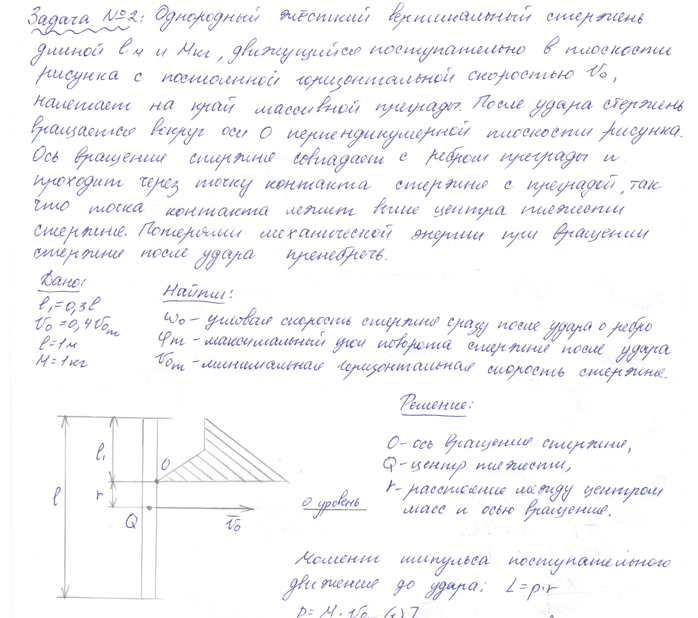 Задача №2: Однородный жёсткий вертикальный стержень
длиной l м и M кг, движущийся поступательно в плоскости
рисунка с постоянной горизонтальной скоростью V₀,
налетает на край массивной преграды. После удара стержень
вращается вокруг оси O перпендикулярной плоскости рисунка.
Ось вращения стержня совпадает с ребром преграды и
проходит через точку контакта стержня с преградой, так
что точка контакта лежит выше центра тяжести
стержня. Потерями механической энергии при вращении
стержня после удара пренебречь.
Дано:
l₁=0,3l
V₀=0,4V₀ₘ
l=1м
M=1кг
Найти:
ω₀ – угловая скорость стержня сразу после удара о ребро
φm – максимальный угол поворота стержня после удара
V₀ₘ – минимальная горизонтальная скорость стержня.
Решение:
O – ось вращения стержня,
Q – центр тяжести,
r – расстояние между центром
масс и осью вращения.
l
l₁
r
O
Q
V₀
0 уровень
Момент импульса поступательного
движения до удара: L=p·r
p=M·V₀ (1)